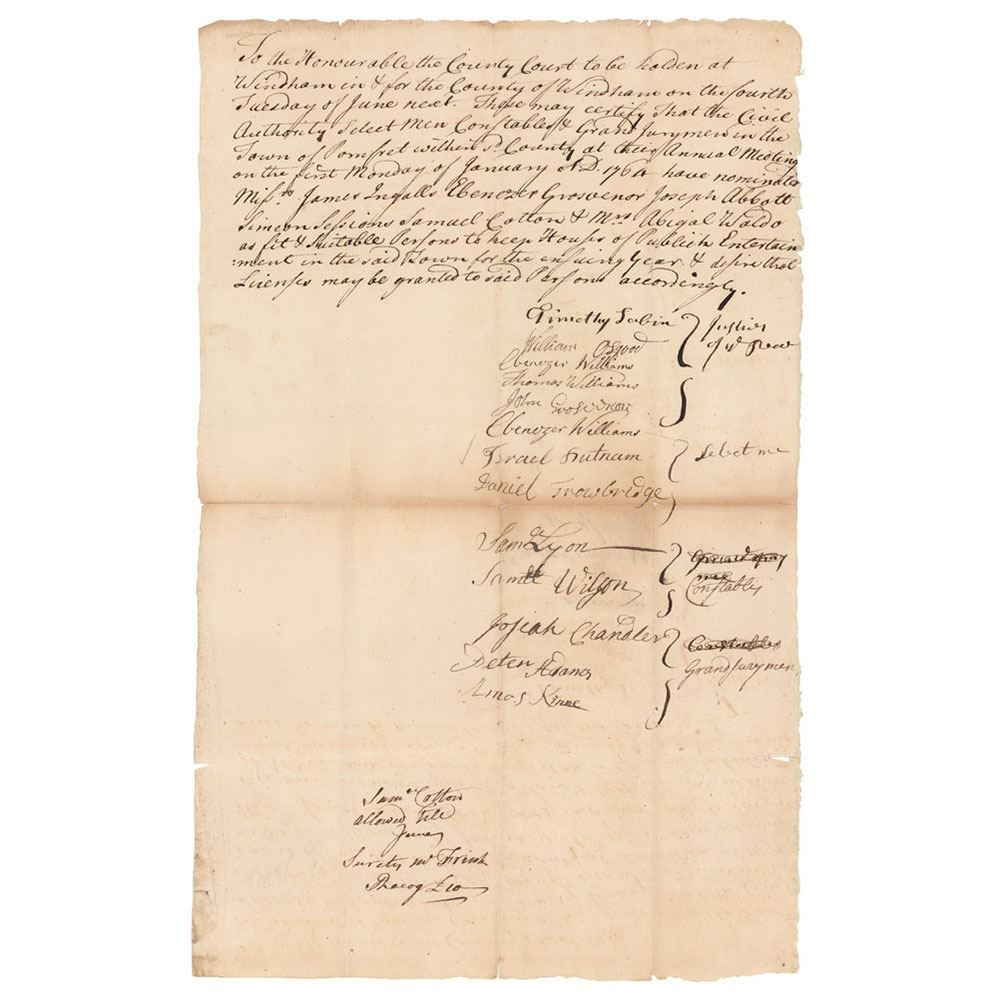 To the Honourable the County Court to be holden at
Windham in & for the County of Windham on the fourth
Tuesday of June next. These may certify That the Civil
Authority Select Men Constables & Grand Jurymen in the
Town of Pomfret within sd. County at their Annual Meeting
on the first Monday of January A.D. 1764 have nominated
Misrs James Ingalls Ebenezer Grosvenor Joseph Abbott
Simeon Sessions Samuel Cotton & Mrs Abigal Waldo
as fit & suitable Persons to keep Houses of Publick Entertain
:ment in the said Town for the ensuing Year & desire that
Licenses may be granted to said Persons accordingly.
Timothy Sabin Justices
William Osgood of ye Peace
Ebenezer Williams
Thomas Williams
John Grosvenor
Ebenezer Williams
Israel Putnam Select me
Daniel Trowbridge
Saml Lyon
Samll Wilson Constables
Josiah Chandler Constables
Peter Adams Grand Jurymen
Amos Kinne
Saml Cotton
allowed till
June
Surety mr Frink